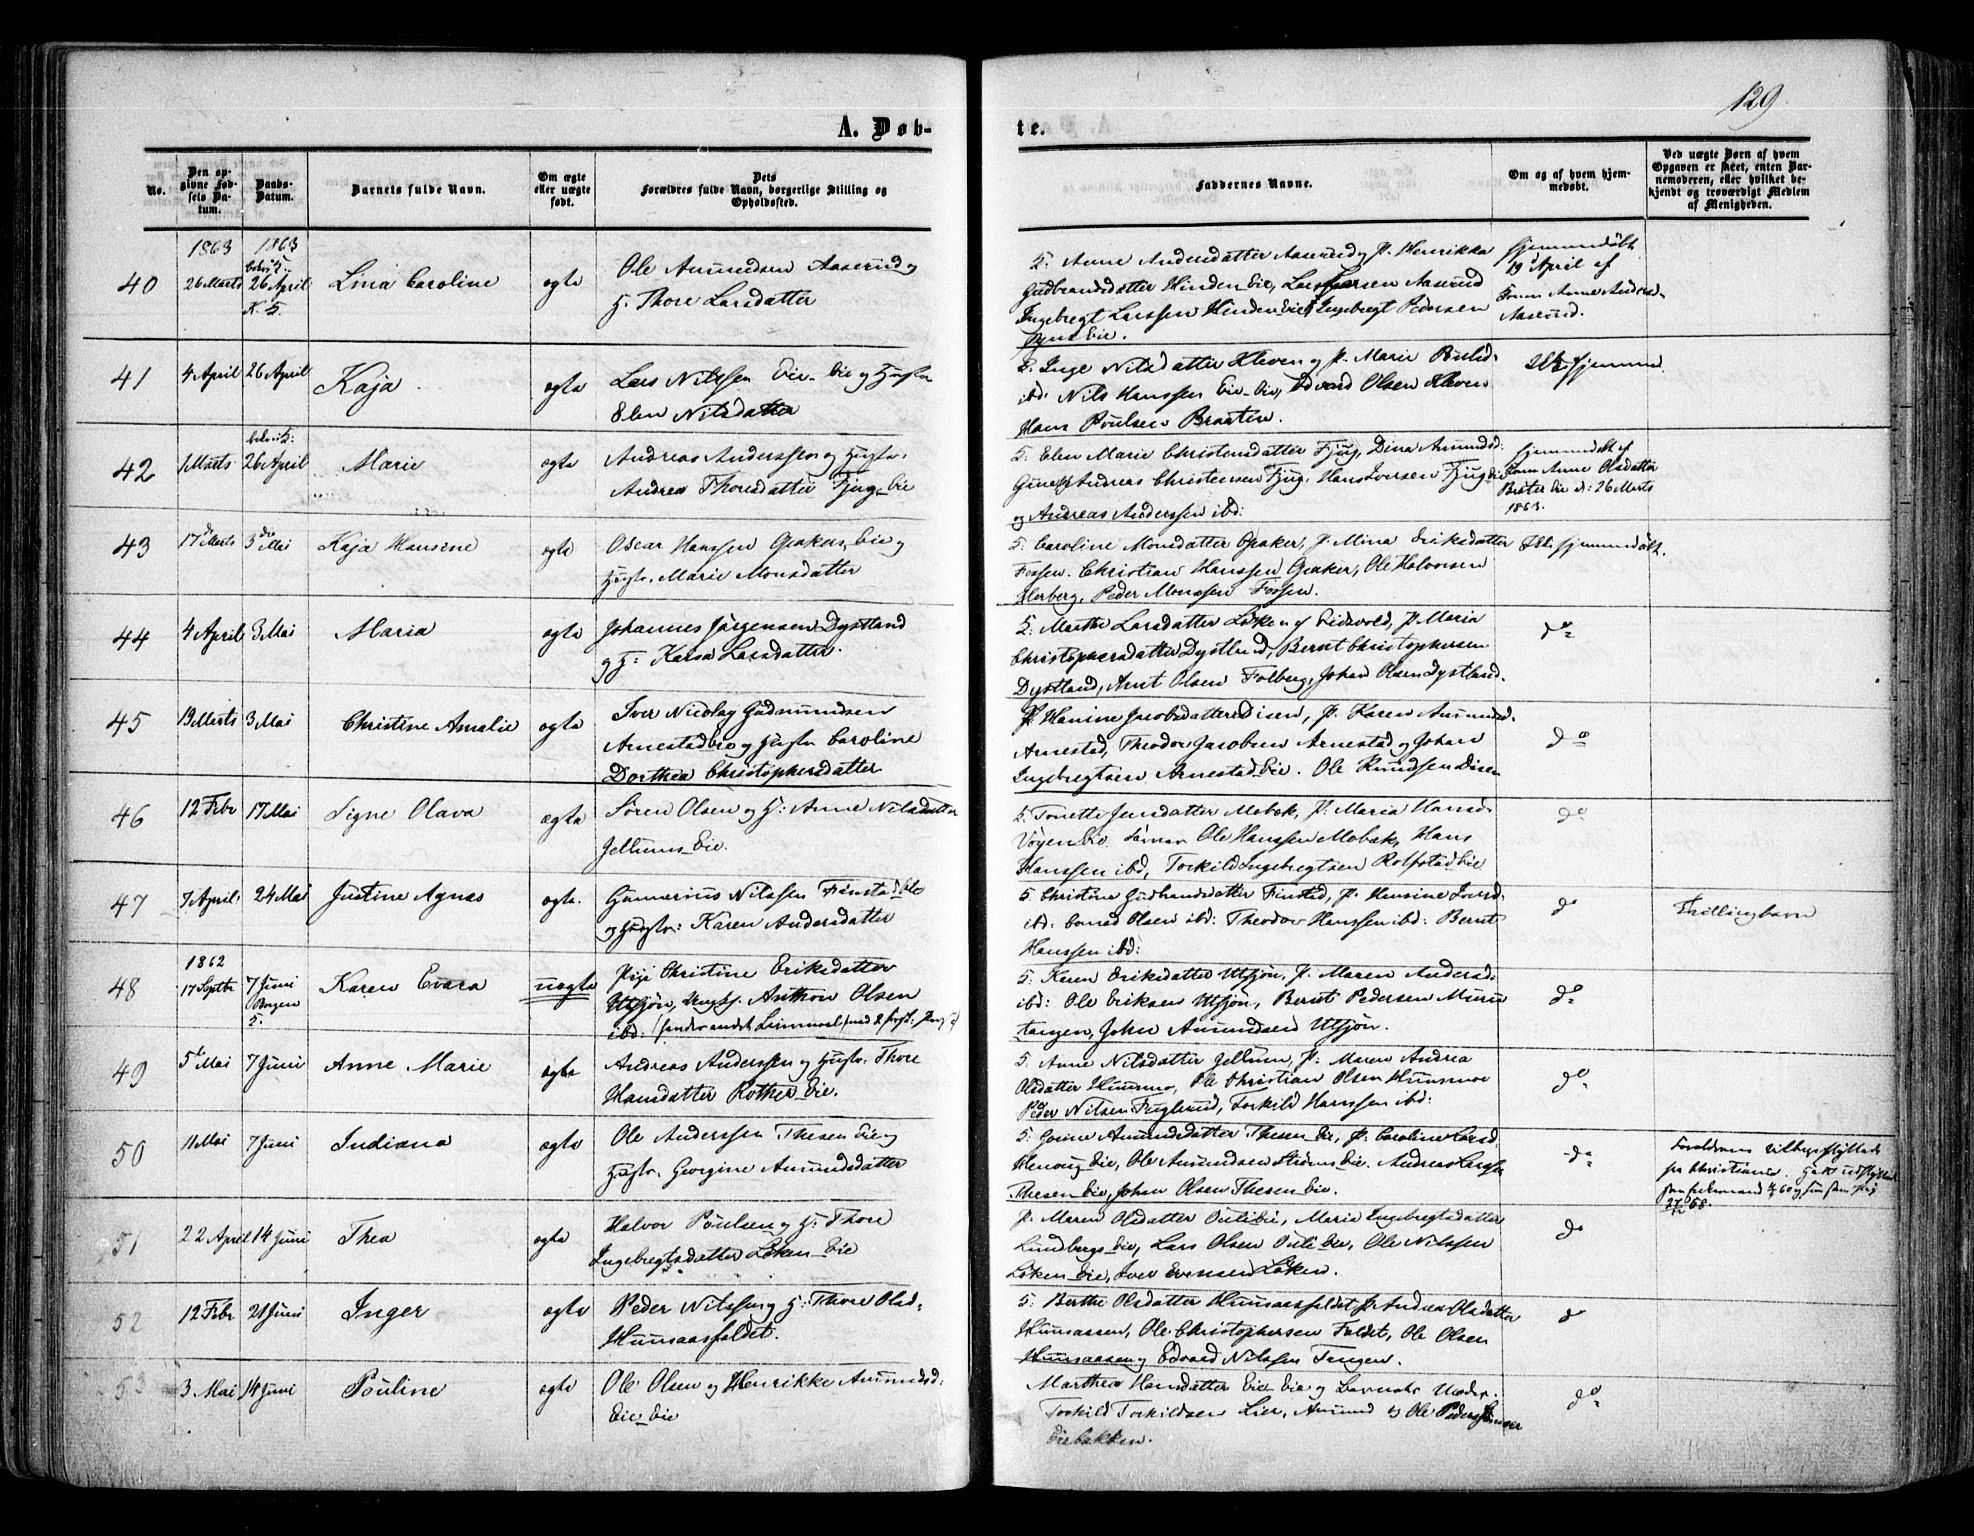 129
A. Døb-
te.
No.
Den opgivne Fødsels Datum.
Daabs-Datum.
Barnets fulde Navn.
Om ægte eller uægte født.
Dets Forældres fulde Navn, borgerlige Stilling og Opholdssted.
Faddernes Navne.
Om og af hvem hjemmedøbt.
Ved uægte Børn af hvem Opgaven er skeet, enten Barnemoderen, eller hvilket bekjendt og troværdigt Medlem af Menigheden.
1863 1863
40 26 Marts 26 April Lina Caroline ægte Ole Amundsen Aaserud og
H. Thore Larsdatter
Anne Andersdatter Aaserud, P. Henrikka
Gudbrandsdatter Hinden Eie, Lars Aaserud
Ingebregt Larssen Hinden Eie, Ingebregt Pedersen
Eie.
Hjemmedøbt
19 April af
Anne Anders
Aaserud.
41 4 April 26 April Kaja ægte Lars Nilssen Eie-Eie og Hustr
Elen Nilsdatter
Inge Nilsdatter Kleven, P. Marie
ibd. Nils Hanssen Eie-Eie, Edvard Olsen Kleven
Hans Poulsen Braaten.
Ikke hjemmed.
42 1 Marts 26 April Marie ægte Andreas Anderssen og Hustr.
Andrea Thoresdatter Fjug-Eie
Elen Marie Christensdatter Fjug, Dina Amundsd.
Andreas Christensen Fjug, Hans Iversen Fjug Eie
og Andreas Anderssen ibd:
hjemmedøbt af
Anne Olsdatter
Eie d: 26 Marts
1863.
43 17 Marts 3 Mai Kaja Hansine ægte Oscar Hanssen Opaker Eie og
Hustr. Marie Monsdatter
Caroline Monsdatter Opaker, P. Mina Eriksdatter
Fossen. Christian Hanssen Opaker, Ole Halvorsen
Herberg, Peder Monssen Fossen.
Ikke hjemmedøbt.
44 4 April 3 Mai Maria ægte Johannes Jørgensen Dystland
og H: Karen Larsdatter.
Marthe Larsdatter Løken af Eidsvold, P. Maria
Christophersdatter Dystland, Bernt Christophersen
Dystland, Arnt Olsen Folberg, Johan Olsen Dystland.
do
45 19 Marts 3 Mai Christine Amalie ægte Iver Nicolay Gudmundsen
Arnestad Eie og Hustr Caroline
Dorthea Christophersdatter
P. Hanine Jacobsdatter Disen, P. Karen Amundsd.
Arnestad, Theodor Jacobsen Arnestad og Johan
Ingebregtsen Arnestad Eie. Ole Knudsen Disen
do
46 12 Febr 17 Mai Signe Olava ægte Søren Olsen og H: Anne Nilsdatter
Jellum Eie.
Tonette Jensdatter Mobæk, P. Maria Hansd.
Vøyen Eie. Ole Hanssen Mobæk, Hans
Hanssen ibd, Torkild Ingebregtsen Rolfstad Eie
do
47 7 April 24 Mai Justine Agnes ægte. Gunnerius Nilssen Finstad Eie
og Hustr: Karen Andersdatter
Christine Gudbrandsdatter Finstad, P. Hansine Iversd.
ibd: Olsen ibd: Theodor Hanssen ibd: Bernt
Hanssen ibd:
do
Tvillingbarn
1862
48 17 Septbr 7 Juni Karen Evara uægte Pige Christine Eriksdatter
Utsjøn, Ungk. Anthon Olsen
ibd:
Karen Eriksdatter Utsjøn, P. Maren Andersd.
ibd: Ole Eriksen Utsjøn, Bernt Pedersen
tangen, John Amundsen Utsjøn.
do
49 5 Mai 7 Juni Anne Marie ægte Andreas Anderssen og Hustr. Thore
Hansdatter Rother Eie.
Anne Nilsdatter Jellum, P: Maren Andrea
Olsdatter Huusmo, Ole Christian Olsen Huusmoe
Peder Nilsen Fuglerud, Torkild Hanssen ibd:
do
50 11 Mai 7 Juni Indiana ægte Ole Anderssen Thesen Eie og
Hustr. Georgine Amundsdatter
Amundsdatter Thesen Eie, P. Caroline Larsd
Eie, Ole Amundsen Strøms Eie. Andreas
Thesen Eie, Johan Olsen Thesen Eie.
do
Forældrene tilbageflyttede
fra Christiania.
51 22 April 14 Juni Thea ægte Halvor Poulsen og H. Thore
Ingebregtsdatter Løken Eie
P. Maren Olsdatter Eie, Maria Ingebregtsdatter
Lundbergs Eie, Lars Olsen Eie, Ole Nilssen
Løken Eie, Iver Evensen Løken.
do
52 12 Febr 21 Juni Inger ægte Peder Nilssen og H: Thore Olsd:
Huusaasfaldet.
Berthe Olsdatter Huusaasfaldet, P. Andrea Olsdatter
Huusaasen, Ole Christophersen Faldet, Ole Olsen
Huusaasen og Edvard Nilssen Tangen.
do
53 3 Mai 14 Juni Pouline ægte Ole Olsen og Henrikke Amundsd.
Eie-Eie
Marthea Hansdatter Eie Eie og Barnets Moder.
Torkild Torkildsen Lier, Amund og Ole Peders
Eiebakken.
do